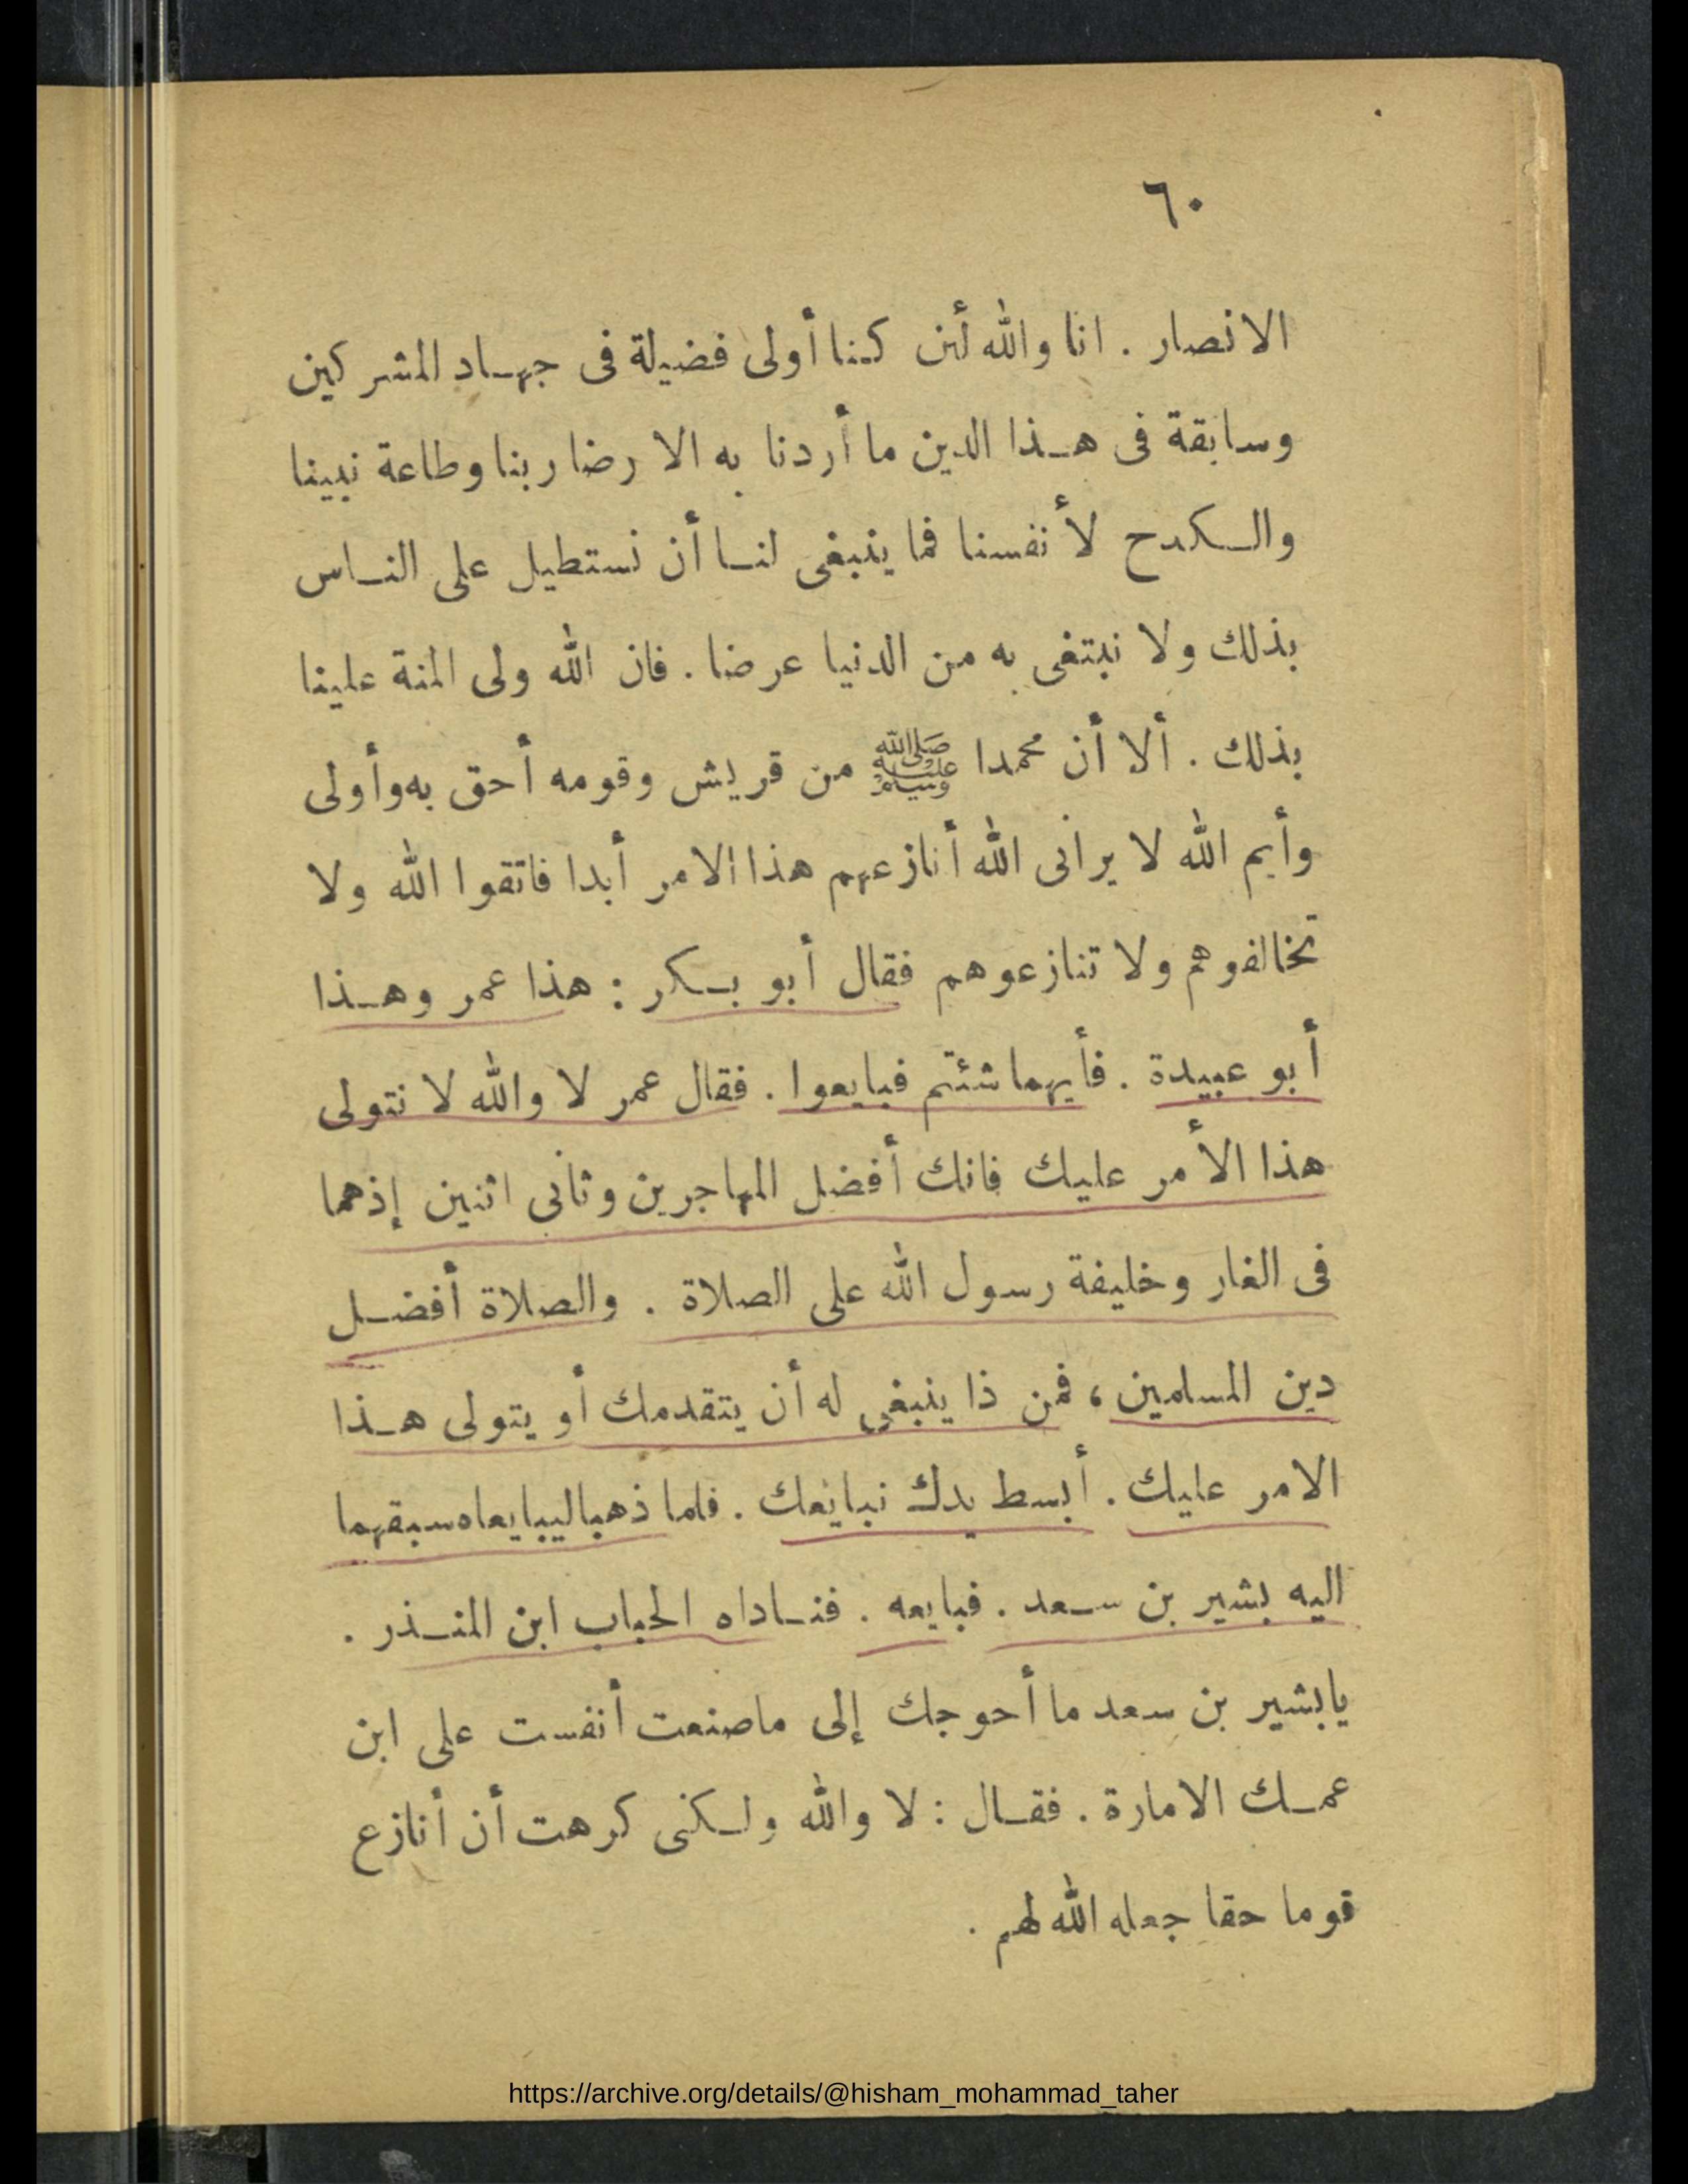 ٦٠
الانصار . انا والله لئن كنا أولى فضيلة فى جهاد المشركين
وسابقة فى هذا الدين ما أردنا به الا رضا ربنا وطاعة نبينا
والكدح لأنفسنا فما ينبغى لنا أن نستطيل على الناس
بذلك ولا نبتغى به من الدنيا عرضا . فان الله ولى المنة علينا
بذلك . ألا أن محمدا ﷺ من قريش وقومه أحق به وأولى
وأيم الله لا يرانى الله أنازعهم هذا الامر أبدا فاتقوا الله ولا
تخالفوهم ولا تنازعوهم فقال أبو بكر : هذا عمر وهذا
أبو عبيدة . فأيهما شئتم فبايعوا . فقال عمر لا والله لا نتولى
هذا الأمر عليك فانك أفضل المهاجرين وثانى اثنين إذهما
فى الغار وخليفة رسول الله على الصلاة . والصلاة أفضل
دين المسلمين ، فمن ذا ينبغى له أن يتقدمك أو يتولى هذا
الامر عليك . أبسط يدك نبايعك . فلما ذهبا ليبايعاه سبقهما
اليه بشير بن سعد . فبايعه . فناداه الحباب ابن المنذر .
يابشير بن سعد ما أحوجك إلى ماصنعت أنفست على ابن
عمك الامارة . فقال : لا والله ولكنى كرهت أن أنازع
قوما حقا جعله الله لهم .
https://archive.org/details/@hisham_mohammad_taher